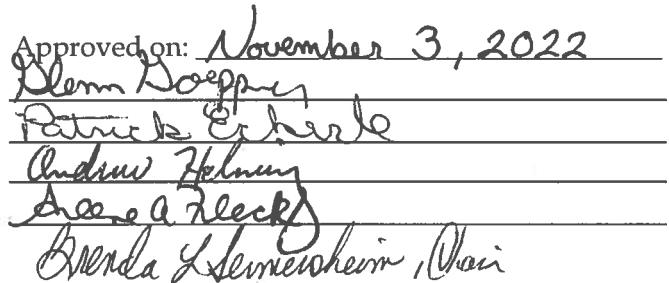 Approved on: November 3, 2022
Glenn Goeppner
Patrick Eckerle
Andrew Helming
Arlene A Fleck
Brenda L Sermersheim, Chair